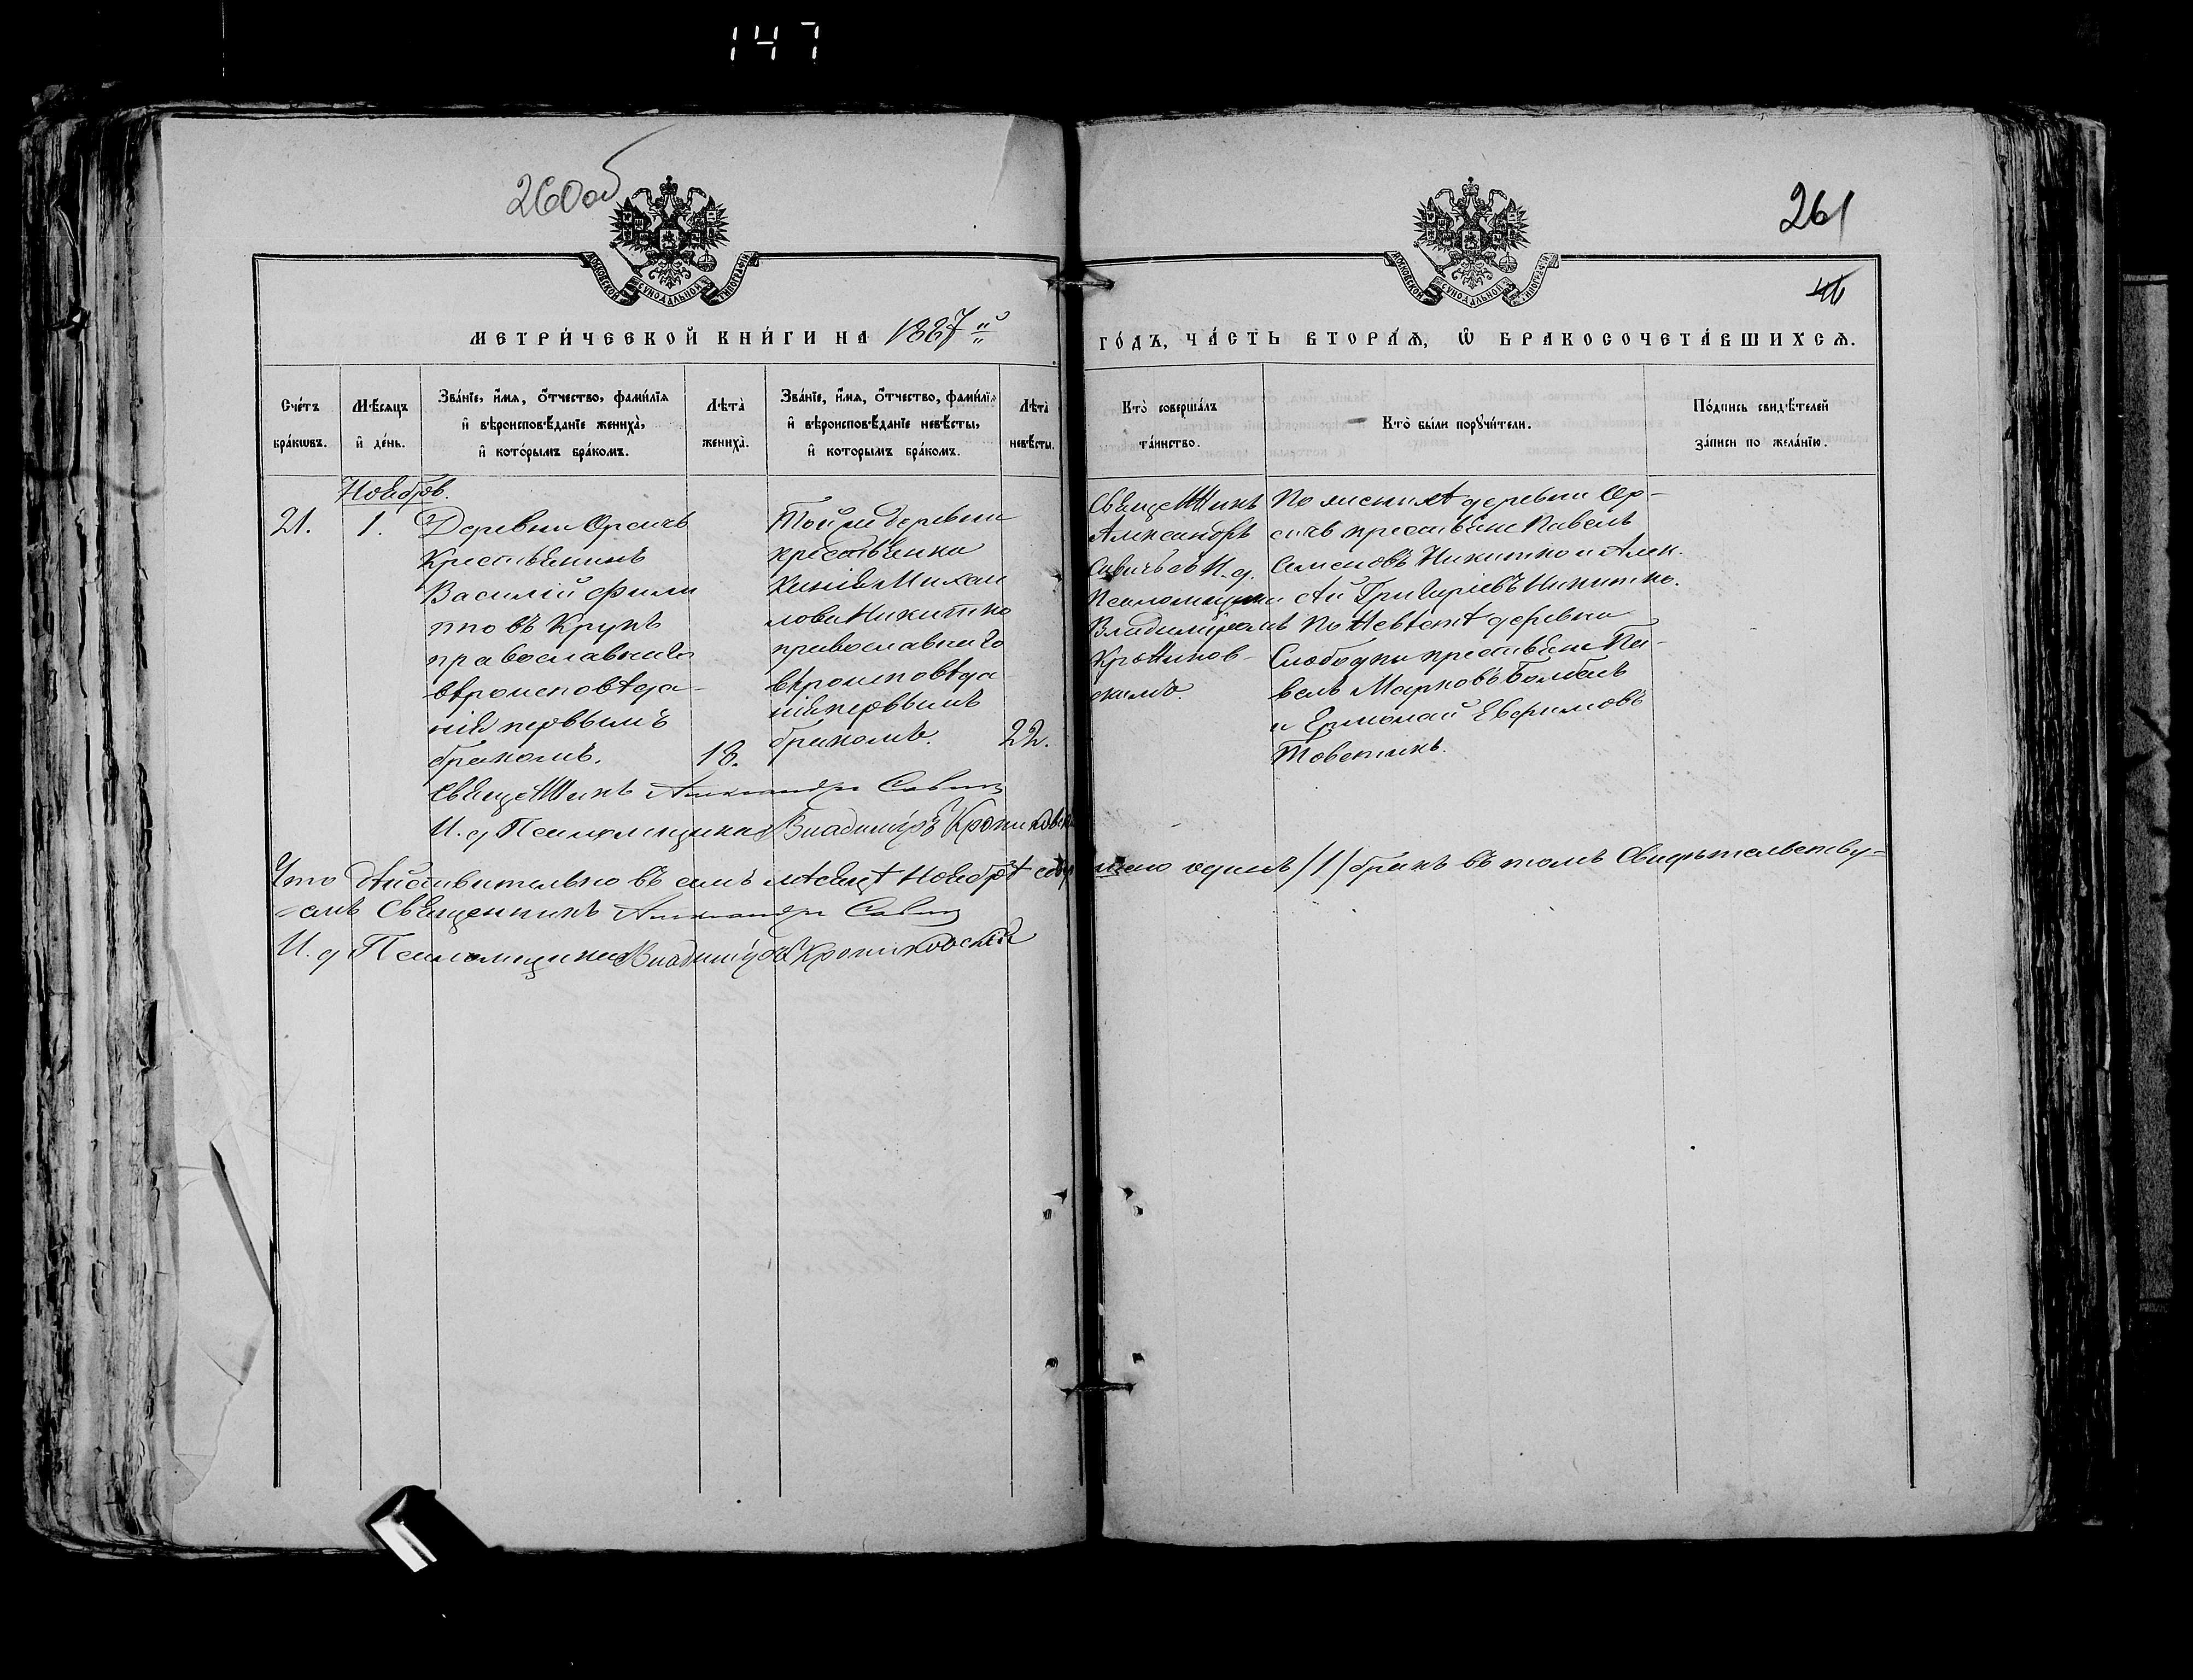 147
260об
261
МОСКОВСКОЙ СУНОДАЛЬНОЙ ТИПОГРАФІИ
МОСКОВСКОЙ СУНОДАЛЬНОЙ ТИПОГРАФІИ
МЕТРИ́ЧЕСКОЙ КНИ́ГИ НА 1887й
ГО́ДЪ, ЧА́СТЬ ВТОРА́Я, Ѡ БРАКОСОЧЕТА́ВШИХСЯ.
Сче́тъ бра́кѡвъ.
Мѣ́сяцъ и де́нь.
Зва́нїе, и҆́мя, ѻ҆́тчество, фами́лїя и҆ вѣроисповѣ́данїе жениха̀, и҆ кото́рымъ бра́комъ.
Лѣта̀ жениха̀.
Зва́нїе, и҆́мя, ѻ҆́тчество, фами́лїя и҆ вѣроисповѣ́данїе невѣ́сты, и҆ которымъ бра́комъ.
Лѣта̀ невѣ́сты.
Кто̀ соверша́лъ та́инство.
Кто̀ бы́ли порꙋчи́тели.
По́дпись свидѣ́телей за́писи по жела́нїю.
Ноября.
21.
1.
Деревни Оресичъ
Крестьянинъ
Василій Фили
пповъ Крукъ
православнаго
вѣроисповѣда-
нія первымъ
бракомъ.
18.
Той же деревни
крестьянка
Ксенія Михаи
лова Никитко
православнаго
вѣроисповѣда
нія первымъ
бракомъ.
22.
Священникъ
Александръ
Савичъ съ И. д.
Псаломщика
Владиміромъ
По женихѣ деревни Ор-
сичъ крестьяне Павелъ
Семеновъ Никитко и Алек-
сѣй Григоріевъ Никитко.
По невѣстѣ деревни
Слободки крестьяне Па-
велъ Марковъ
и Ермолай Евфимовъ
Священникъ Александръ Савичъ
И. д Псаломщика Владиміръ
Что дѣйствительно въ семъ мѣсяцѣ Ноябрѣ совершено одинъ /1/ бракъ въ томъ свидѣтельству-
-емъ Священникъ Александръ Савичъ
И. д Псаломщика Владиміръ